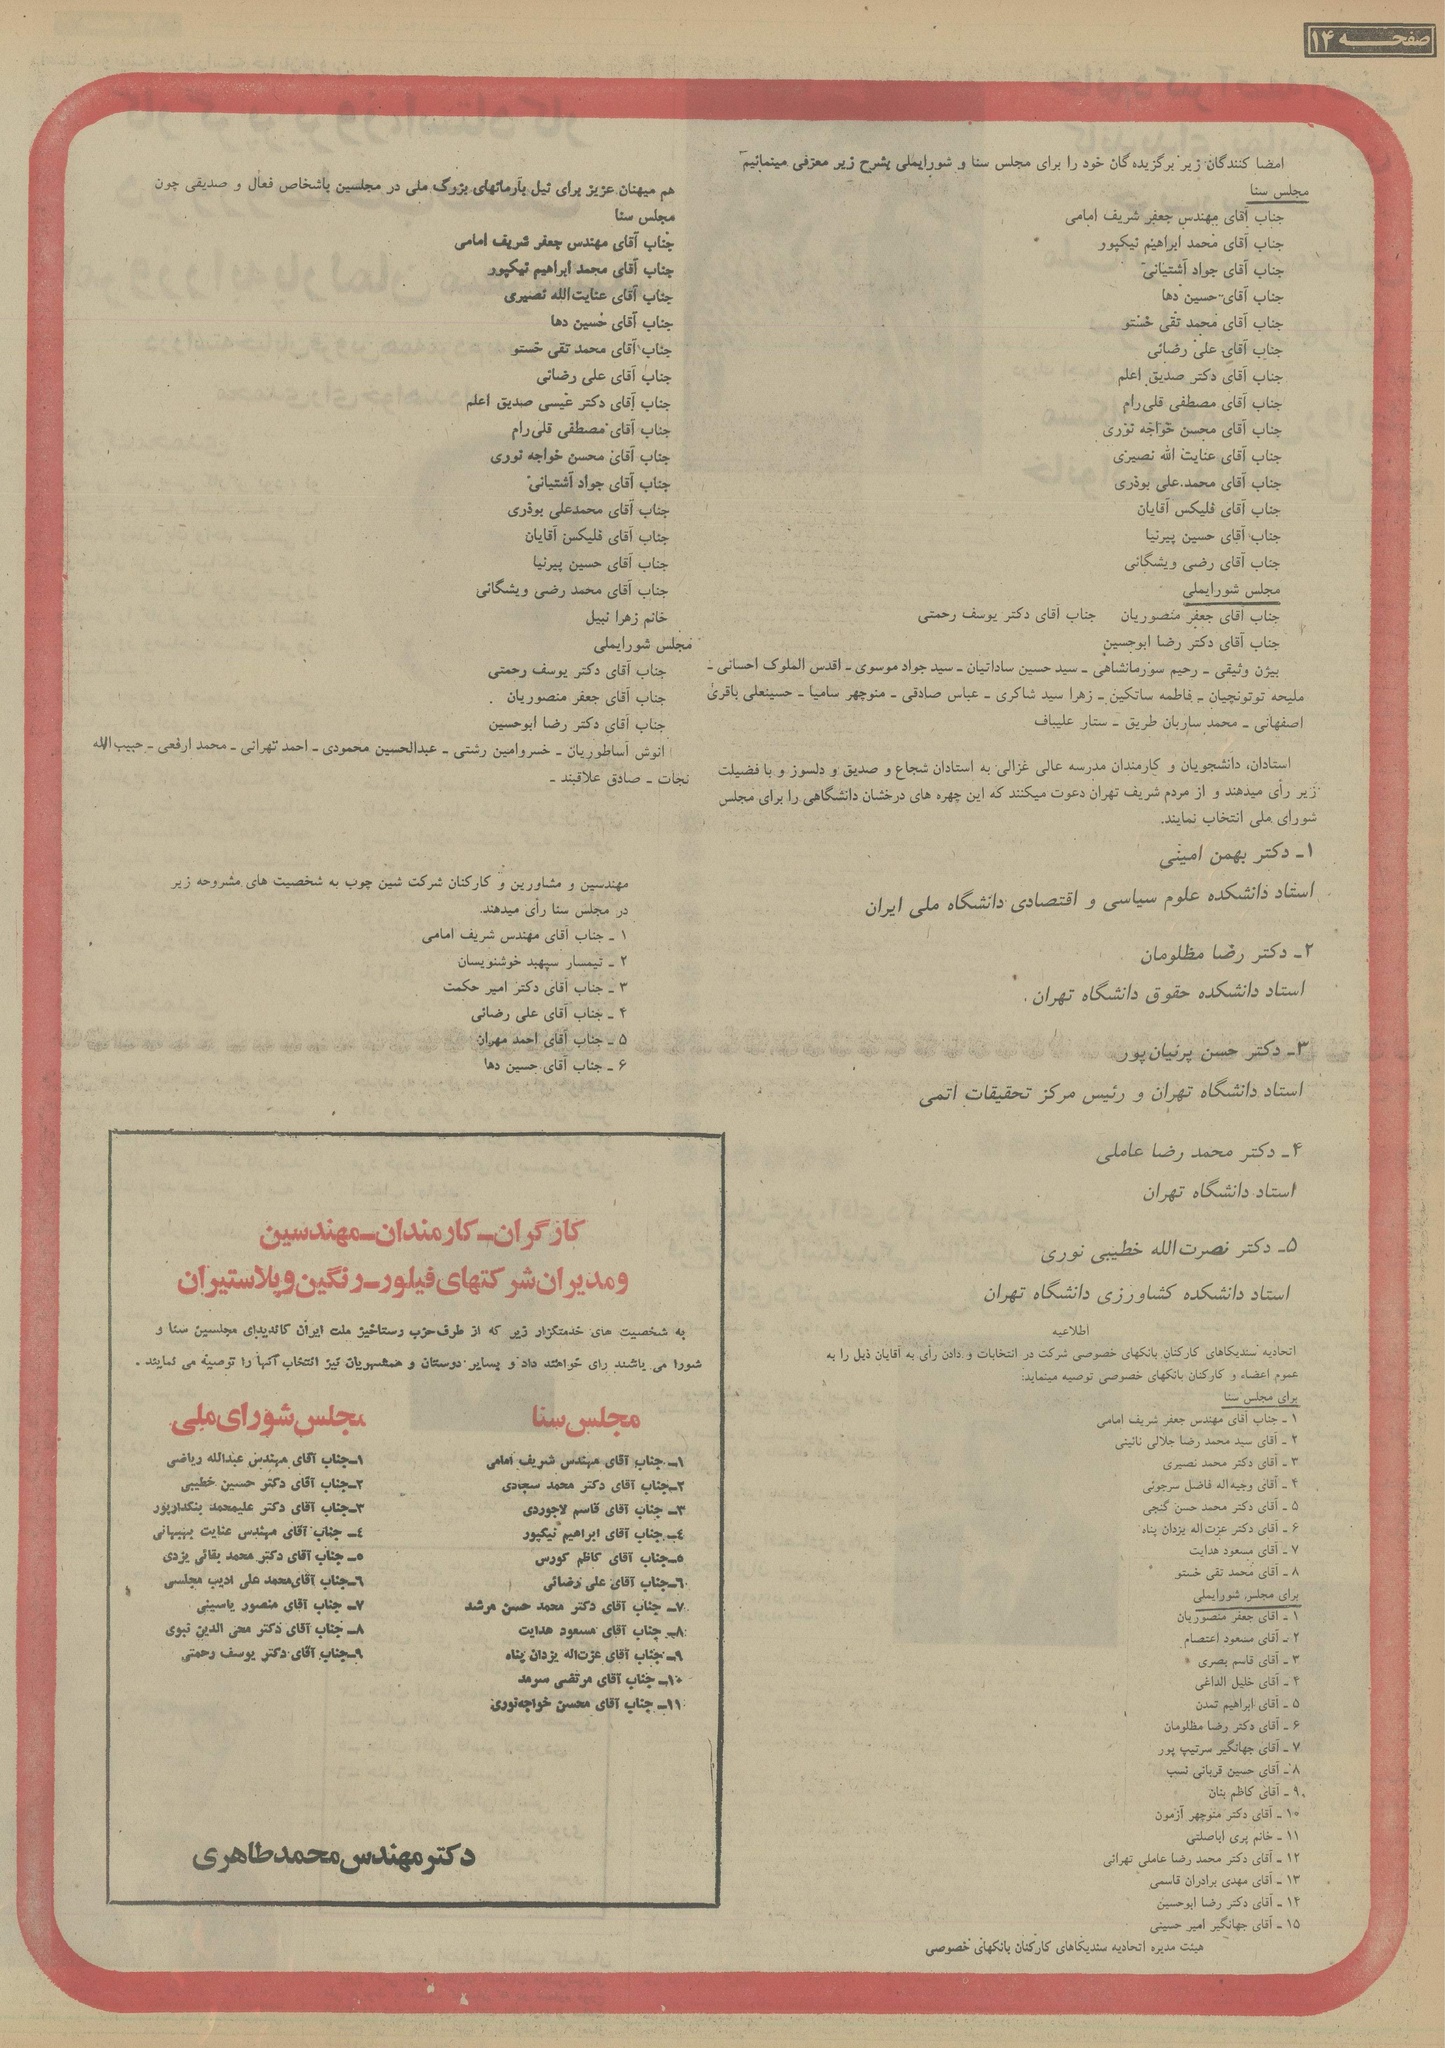 صفحه ۱۴
امضا کنندگان زیر برگزیده‌گان خود را برای مجلس سنا و شورایملی بشرح زیر معرفی مینمائیم
مجلس سنا
جناب آقای مهندس جعفر شریف امامی
جناب آقای محمد ابراهیم نیکپور
جناب آقای جواد آشتیانی
جناب آقای حسین دها
جناب آقای محمد تقی خستو
جناب آقای علی رضائی
جناب آقای دکتر صدیق اعلم
جناب آقای مصطفی قلی رام
جناب آقای محسن خواجه نوری
جناب آقای عنایت الله نصیری
جناب آقای محمد علی بوذری
جناب آقای فلیکس آقایان
جناب آقای حسین پیرنیا
جناب آقای رضی ویشگائی
مجلس شورایملی
جناب آقای جعفر منصوریان جناب آقای دکتر یوسف رحمتی
جناب آقای دکتر رضا ابوحسین
بیژن وثیقی ـ رحیم سورمانشاهی ـ سید حسین ساداتیان ـ سید جواد موسوی ـ اقدس الملوک احسانی ـ
ملیحه توتونچیان ـ فاطمه ساتکین ـ زهرا سید شاکری ـ عباس صادقی ـ منوچهر سامیا ـ حسینعلی باقری
اصفهانی ـ محمد ساربان طریق ـ ستار علیباف
استادان، دانشجویان و کارمندان مدرسه عالی غزالی به استادان شجاع و صدیق و دلسوز و با فضیلت
زیر رأی میدهند و از مردم شریف تهران دعوت میکنند که این چهره های درخشان دانشگاهی را برای مجلس
شورای ملی انتخاب نمایند.
۱ـ دکتر بهمن امینی
استاد دانشکده علوم سیاسی و اقتصادی دانشگاه ملی ایران
۲ـ دکتر رضا مظلومان
استاد دانشکده حقوق دانشگاه تهران.
۳ـ دکتر حسن پرنیان‌پور
استاد دانشگاه تهران و رئیس مرکز تحقیقات اتمی
۴ـ دکتر محمد رضا عاملی
استاد دانشگاه تهران
۵ـ دکتر نصرت‌الله خطیبی نوری
استاد دانشکده کشاورزی دانشگاه تهران
اطلاعیه
اتحادیه سندیکاهای کارکنان بانکهای خصوصی شرکت در انتخابات و دادن رأی به آقایان ذیل را به
عموم اعضاء و کارکنان بانکهای خصوصی توصیه مینماید:
برای مجلس سنا
۱ ـ جناب آقای مهندس جعفر شریف امامی
۲ ـ آقای سید محمد رضا جلالی نائینی
۳ ـ آقای دکتر محمد نصیری
۴ ـ آقای وجیه‌اله فاضل سرجوئی
۵ ـ آقای دکتر محمد حسن گنجی
۶ ـ آقای دکتر عزت‌اله یزدان پناه
۷ ـ آقای مسعود هدایت
۸ ـ آقای محمد تقی خستو
برای مجلس شورایملی
۱ ـ آقای جعفر منصوریان
۲ ـ آقای مسعود اعتصام
۳ ـ آقای قاسم بصری
۴ ـ آقای خلیل الداغی
۵ ـ آقای ابراهیم تمدن
۶ ـ آقای دکتر رضا مظلومان
۷ ـ آقای جهانگیر سرتیپ پور
۸ ـ آقای حسین قربانی نسب
۹ ـ آقای کاظم بنان
۱۰ ـ آقای دکتر منوچهر آزمون
۱۱ ـ خانم پری اباصلتی
۱۲ ـ آقای دکتر محمد رضا عاملی تهرانی
۱۳ ـ آقای مهدی برادران قاسمی
۱۴ ـ آقای دکتر رضا ابوحسین
۱۵ ـ آقای جهانگیر امیر حسینی
هیئت مدیره اتحادیه سندیکاهای کارکنان بانکهای خصوصی
هم میهنان عزیز برای نیل بآرمانهای بزرگ ملی در مجلسین باشخاص فعال و صدیقی چون
مجلس سنا
جناب آقای مهندس جعفر شریف امامی
جناب آقای محمد ابراهیم نیکپور
جناب آقای عنایت‌الله نصیری
جناب آقای حسین دها
جناب آقای محمد تقی خستو
جناب آقای علی رضائی
جناب آقای دکتر عیسی صدیق اعلم
جناب آقای مصطفی قلی رام
جناب آقای محسن خواجه نوری
جناب آقای جواد آشتیانی
جناب آقای محمدعلی بوذری
جناب آقای فلیکس آقایان
جناب آقای حسین پیرنیا
جناب آقای محمد رضی ویشگائی
خانم زهرا نبیل
مجلس شورایملی
جناب آقای دکتر یوسف رحمتی
جناب آقای جعفر منصوریان
جناب آقای دکتر رضا ابوحسین
انوش آساطوریان ـ خسروامین رشتی ـ عبدالحسین محمودی ـ احمد تهرانی ـ محمد ارفعی ـ حبیب‌الله
نجات ـ صادق علاقبند ـ
مهندسین و مشاورین و کارکنان شرکت شین چوب به شخصیت های مشروحه زیر
در مجلس سنا رأی میدهند.
۱ ـ جناب آقای مهندس شریف امامی
۲ ـ تیمسار سپهبد خوشنویسان
۳ ـ جناب آقای دکتر امیر حکمت
۴ ـ جناب آقای علی رضائی
۵ ـ جناب آقای احمد مهران
۶ ـ جناب آقای حسین دها
کارگران ـ کارمندان ـ مهندسین
و مدیران شرکتهای فیلور ـ رنگین و پلاستیران
به شخصیت های خدمتگزار زیر که از طرف حزب رستاخیز ملت ایران کاندیدای مجلسین سنا و
شورا می باشند رای خواهند داد و بسایر دوستان و همشهریان نیز انتخاب آنها را توصیه می نمایند ـ
مجلس سنا
۱ـ جناب آقای مهندس شریف امامی
۲ـ جناب آقای دکتر محمد سجادی
۳ـ جناب آقای قاسم لاجوردی
۴ـ جناب آقای ابراهیم نیکپور
۵ـ جناب آقای کاظم کورس
۶ـ جناب آقای علی رضائی
۷ـ جناب آقای دکتر محمد حسن مرشد
۸ـ جناب آقای مسعود هدایت
۹ـ جناب آقای عزت‌اله یزدان پناه
۱۰ـ جناب آقای مرتضی سرمد
۱۱ـ جناب آقای محسن خواجه‌نوری
مجلس شورای ملی
۱ـ جناب آقای مهندس عبدالله ریاضی
۲ـ جناب آقای دکتر حسین خطیبی
۳ـ جناب آقای دکتر علیمحمد بنکدارپور
۴ـ جناب آقای مهندس عنایت بهبهانی
۵ـ جناب آقای دکتر محمد بقائی یزدی
۶ـ جناب آقای محمد علی ادیب مجلسی
۷ـ جناب آقای منصور یاسینی
۸ـ جناب آقای دکتر محی الدین نبوی
۹ـ جناب آقای دکتر یوسف رحمتی
دکتر مهندس محمد طاهری